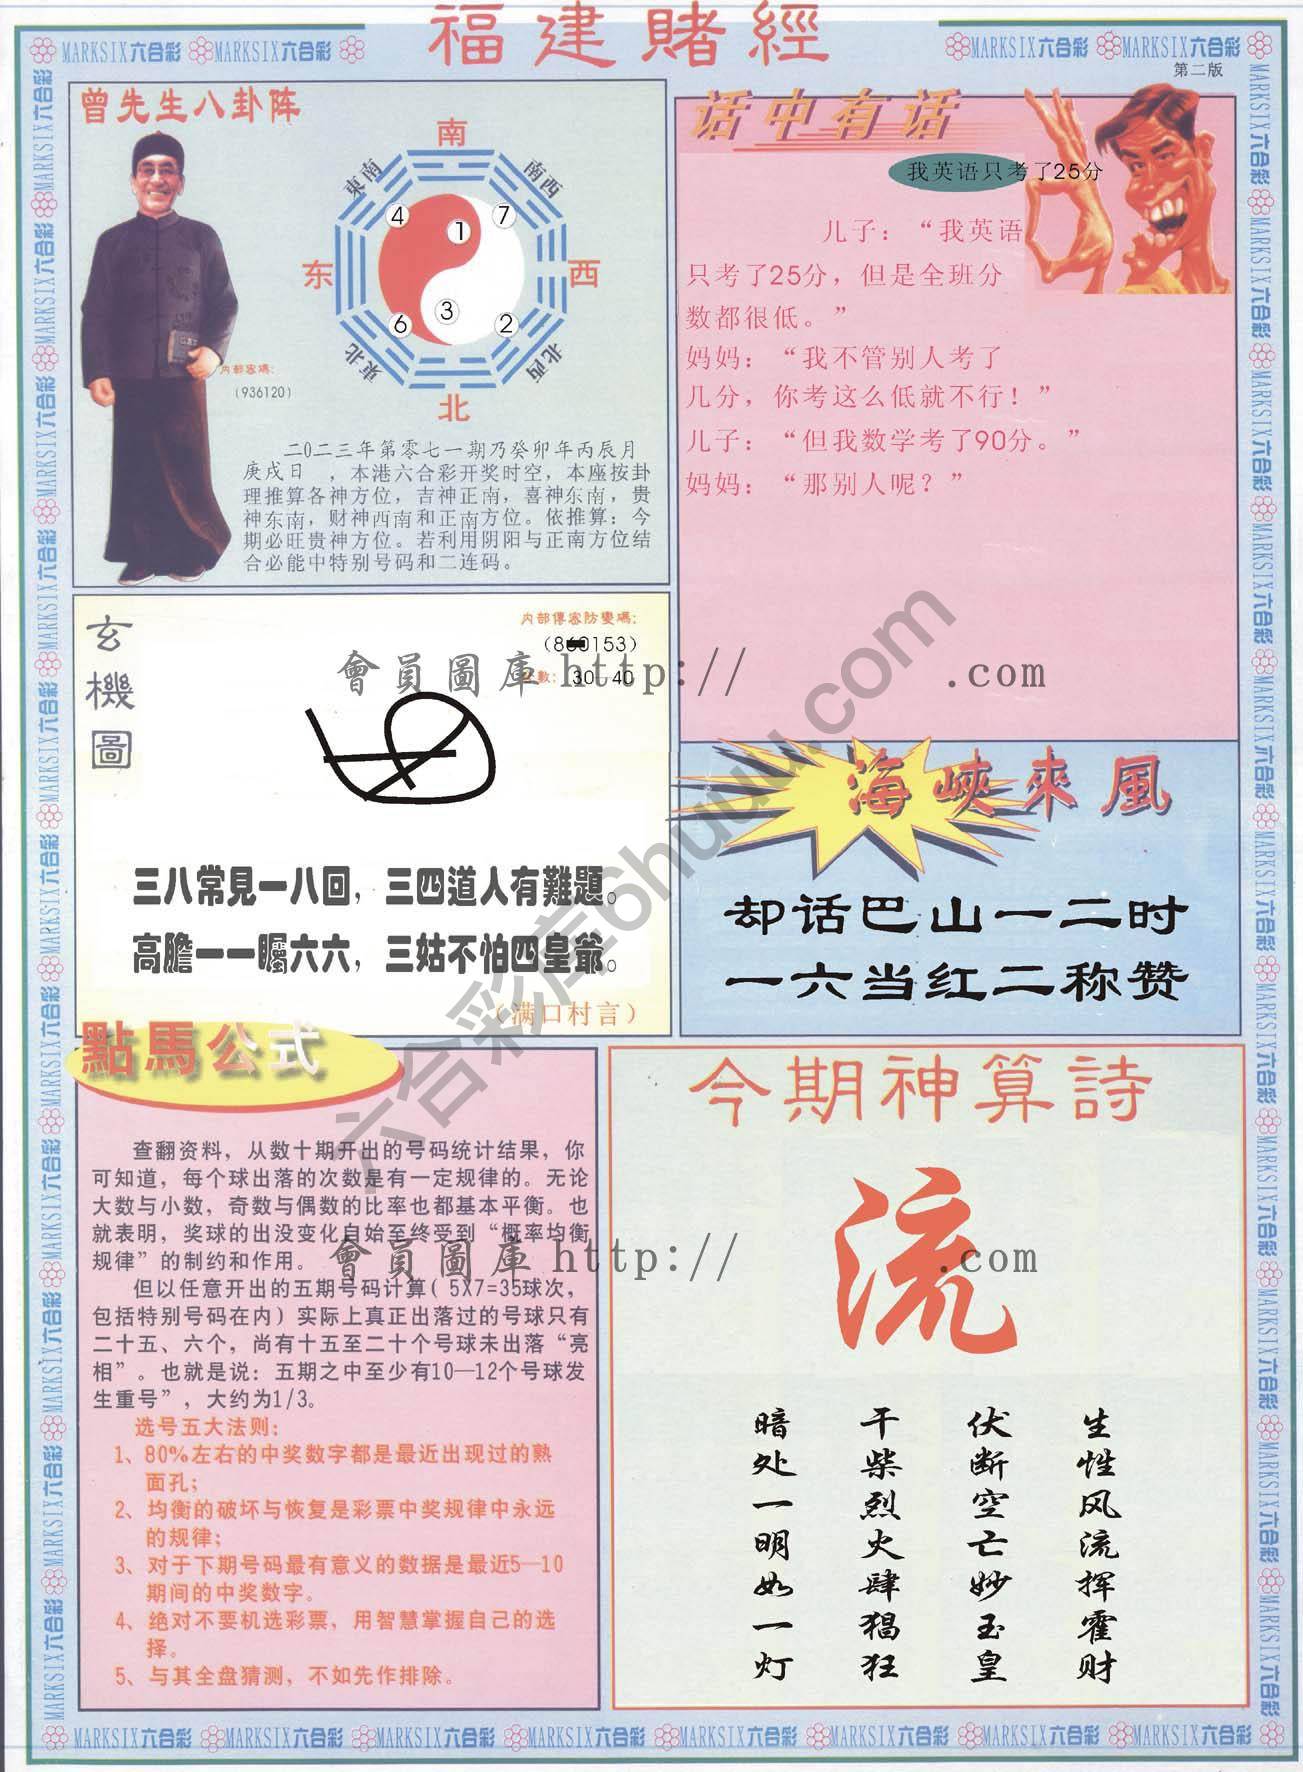 福建賭經
MARKSIX六合彩 MARKSIX六合彩
MARKSIX六合彩 MARKSIX六合彩
第二版
曾先生八卦阵
南
東南
南西
4
1
7
东
西
6
3
2
東北
北西
北
内部密碼:
(936120)
二0二三年第零七一期乃癸卯年丙辰月
庚戌日 ,本港六合彩开奖时空,本座按卦
理推算各神方位,吉神正南,喜神东南,贵
神东南,财神西南和正南方位。依推算:今
期必旺贵神方位。若利用阴阳与正南方位结
合必能中特别号码和二连码。
话中有话
我英语只考了25分
儿子:“我英语
只考了25分,但是全班分
数都很低。”
妈妈:“我不管别人考了
几分,你考这么低就不行!”
儿子:“但我数学考了90分。”
妈妈:“那别人呢?”
玄機圖
内部傳密防變碼:
數: 30-40
會員圖庫 http:// .com
三八常見一八回,三四道人有難題。
高膽一一矚六六,三姑不怕四皇爺。
(满口村言)
海峽來風
却话巴山一二时
一六当红二称赞
六合彩库6huuu.com
點馬公式
查翻资料,从数十期开出的号码统计结果,你
可知道,每个球出落的次数是有一定规律的。无论
大数与小数,奇数与偶数的比率也都基本平衡。也
就表明,奖球的出没变化自始至终受到“概率均衡
规律”的制约和作用。
但以任意开出的五期号码计算(5X7=35球次,
包括特别号码在内)实际上真正出落过的号球只有
二十五、六个,尚有十五至二十个号球未出落“亮
相”。也就是说:五期之中至少有10—12个号球发
生重号”,大约为1/3。
选号五大法则:
1、80%左右的中奖数字都是最近出现过的熟
面孔;
2、均衡的破坏与恢复是彩票中奖规律中永远
的规律;
3、对于下期号码最有意义的数据是最近5—10
期间的中奖数字。
4、绝对不要机选彩票,用智慧掌握自己的选
择。
5、与其全盘猜测,不如先作排除。
會員圖庫 http:// .com
今期神算詩
流
生性风流挥霍财
伏断空亡妙玉皇
干柴烈火肆猖狂
暗处一明如一灯
MARKSIX六合彩 MARKSIX六合彩 MARKSIX六合彩 MARKSIX六合彩 MARKSIX六合彩 MARKSIX六合彩 MARKSIX六合彩 MARKSIX六合彩